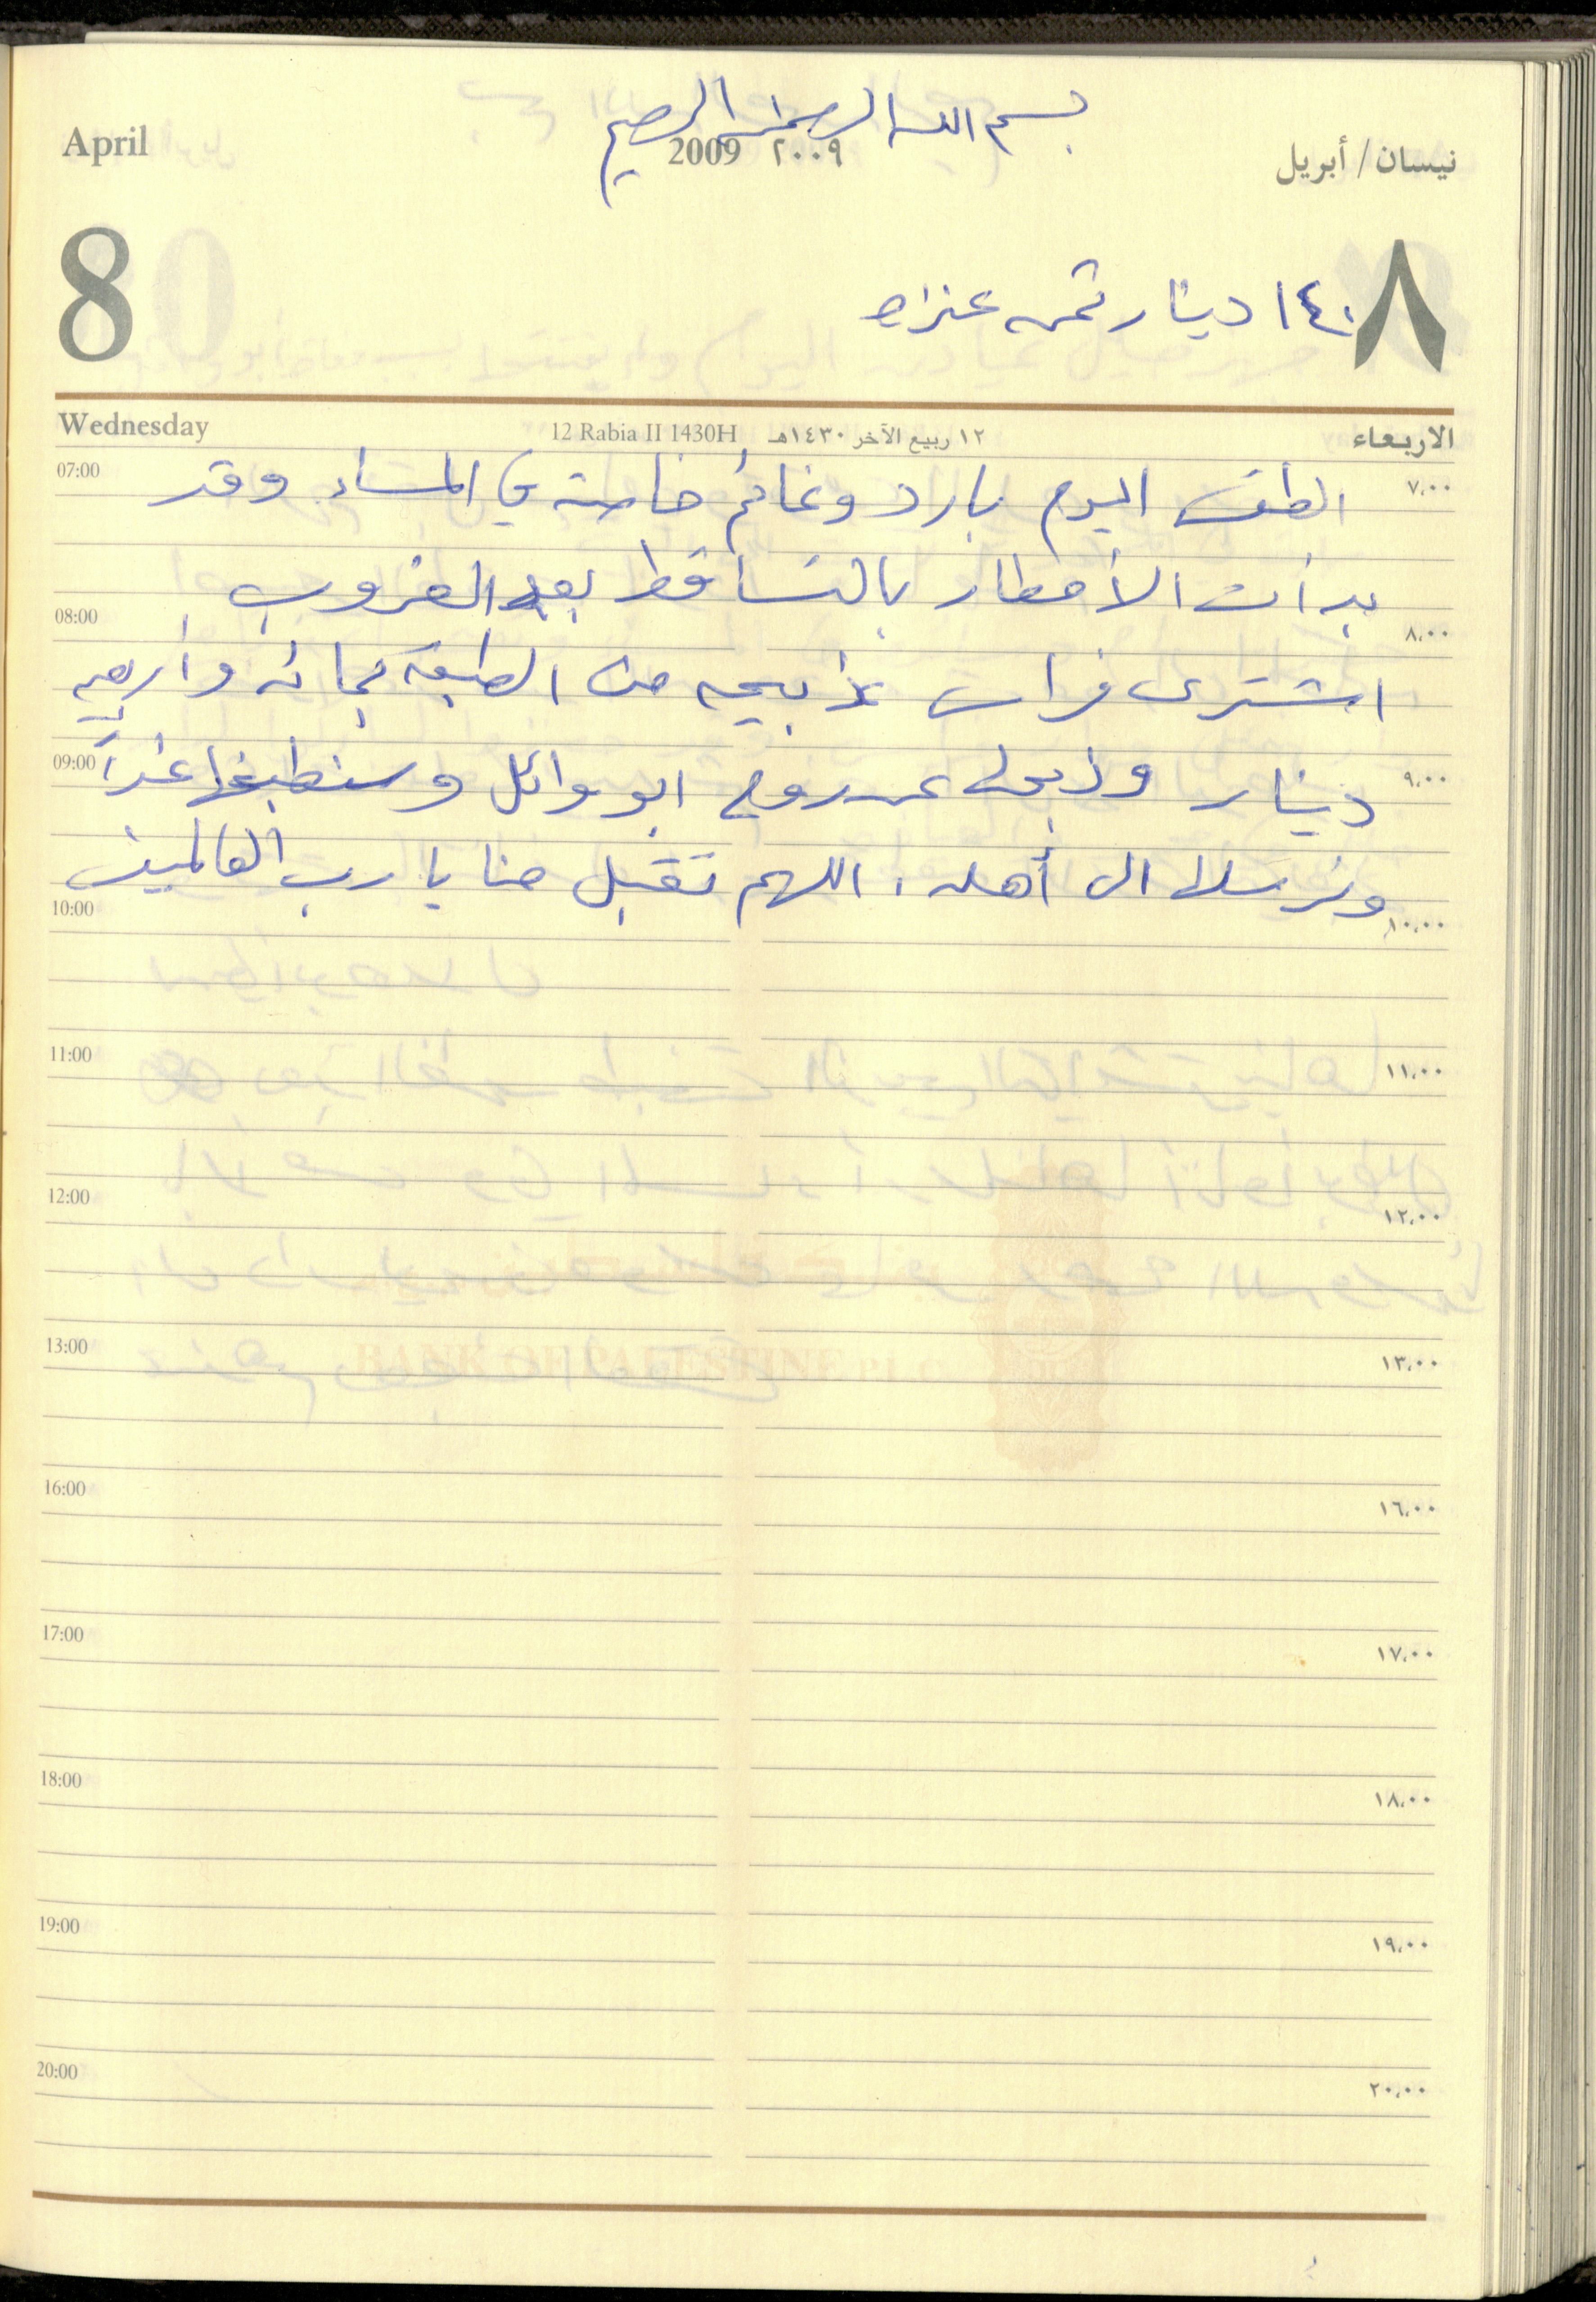 بسم الله الرحمن الرحيم
April 2009 ٢٠٠٩ نيسان / أبريل
8 ٨
١٤٠ دينار ثمن عنزه
Wednesday 12 Rabia II 1430H ١٢ ربيع الآخر ١٤٣٠هـ الاربعاء
07:00 ٧،٠٠
الطقس اليوم بارد وغائم خاصة في المساء وقد
بدأت الأمطار بالتساقط بعد الغروب
08:00 ٨،٠٠
اشترى فراس ذبيحه من الطبقه بمائه وأربعين
09:00 ٩،٠٠
دينار وذبحها عن روح ابو وائل وسنطبخها غداً
ونرسلها الى أهله. اللهم تقبل منا يا رب العالمين
10:00 ١٠،٠٠
11:00 ١١،٠٠
12:00 ١٢،٠٠
BANK OF PALESTINE P.L.C
13:00 ١٣،٠٠
16:00 ١٦،٠٠
17:00 ١٧،٠٠
18:00 ١٨،٠٠
19:00 ١٩،٠٠
20:00 ٢٠،٠٠